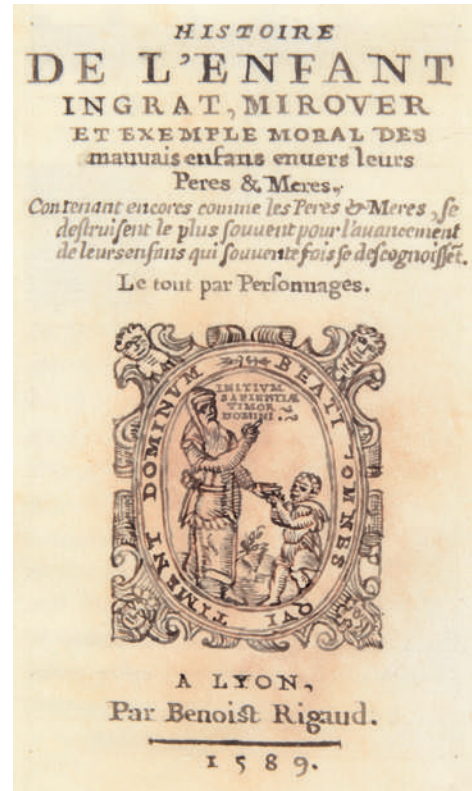 HISTOIRE
DE L'ENFANT
INGRAT, MIROVER
ET EXEMPLE MORAL DES
mauuais enfans enuers leurs
Peres & Meres.
Contenant encores comme les Peres & Meres, se
deſtruiſent le plus ſouuent pour l'auancement
de leurs enfans qui ſouuente fois ſe deſcognoiſſẽt.
Le tout par Perſonnages.
BEATI OMNES QVI TIMENT DOMINVM
INITIVM
SAPIENTIÆ
TIMOR
DOMINI.
A LYON,
Par Benoiſt Rigaud.
1589.